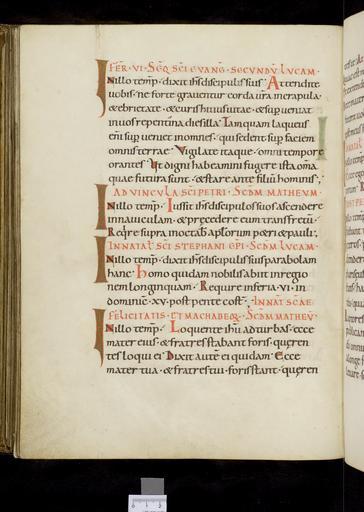 FER · VI · SEQ SCI EVANG · SECVNDV LVCAM ·
In illo temp · dixit ihs discipulis suis · Attendite
uobis · ne forte grauentur corda ura in crapula ·
& ebrietate · & curis huius uitae · & supueniat
in uos repentina dies illa · Tamquam laqueus
eni supueniet in omnes · qui sedent sup faciem
omnis terrae · Vigilate itaque · omni tempore
orantes · Ut digni habeamini fugere ista oma
quae futura sunt · & stare ante filiu hominis ·
AD VINCVLA SCI PETRI · SCDM MATHEVM ·
In illo temp · Iussit ihs discipulos suos ascendere
in nauiculam · & precedere eum transfretu ·
Reqre supra in octab aplorum petri & pauli ·
IN NATAL SCI STEPHANI EPI · SCDM LVCAM ·
In illo temp · dixit ihs discipulis suis parabolam
hanc · Homo quidam nobilis abiit in regio
nem longinquam · Require infra · VI · in
dominica · XV · post pentecost · IN NAT SCAE
FELICITATIS · ET MACHABEOR · SCDM MATHEV ·
In illo temp · Loquente ihu ad turbas · ecce
mater eius · & fratres stabant foris · queren
tes loqui ei · Dixit aute ei quidam · Ecce
mater tua · & fratres tui · foris stant · queren